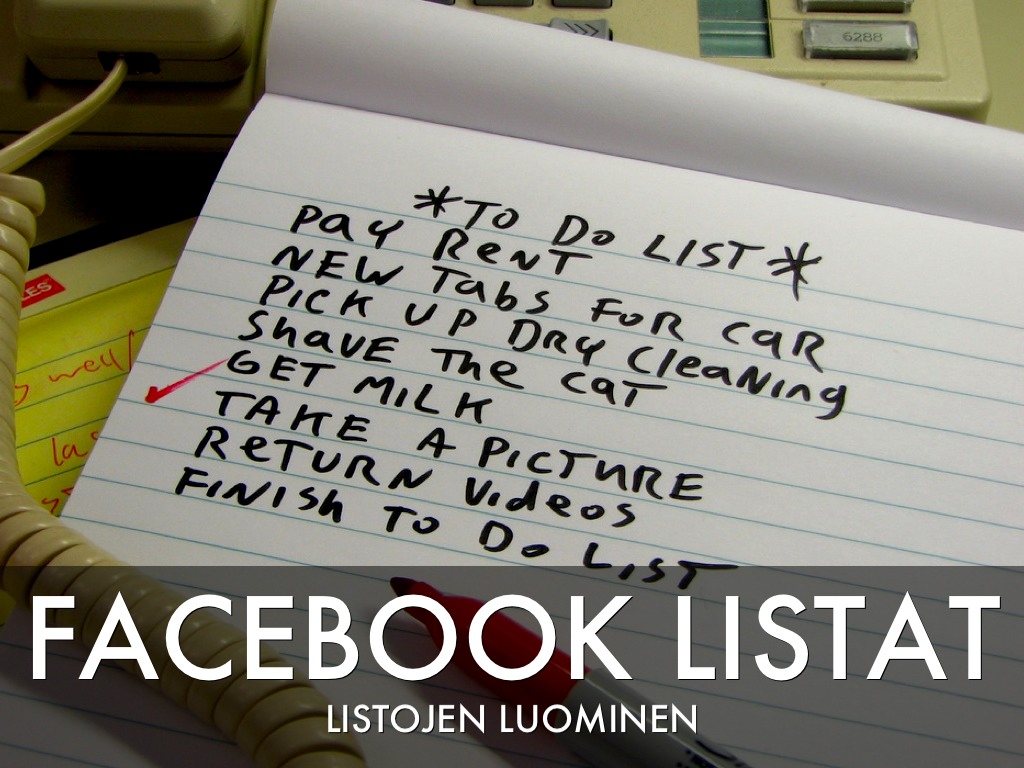 6288
*TO DO LIST*
PAY RENT
NEW TABS FOR CAR
PICK UP DRY CLEANING
SHAVE THE CAT
GET MILK
TAKE A PICTURE
RETURN VIDEOS
FINISH TO DO LIST
FACEBOOK LISTAT
LISTOJEN LUOMINEN